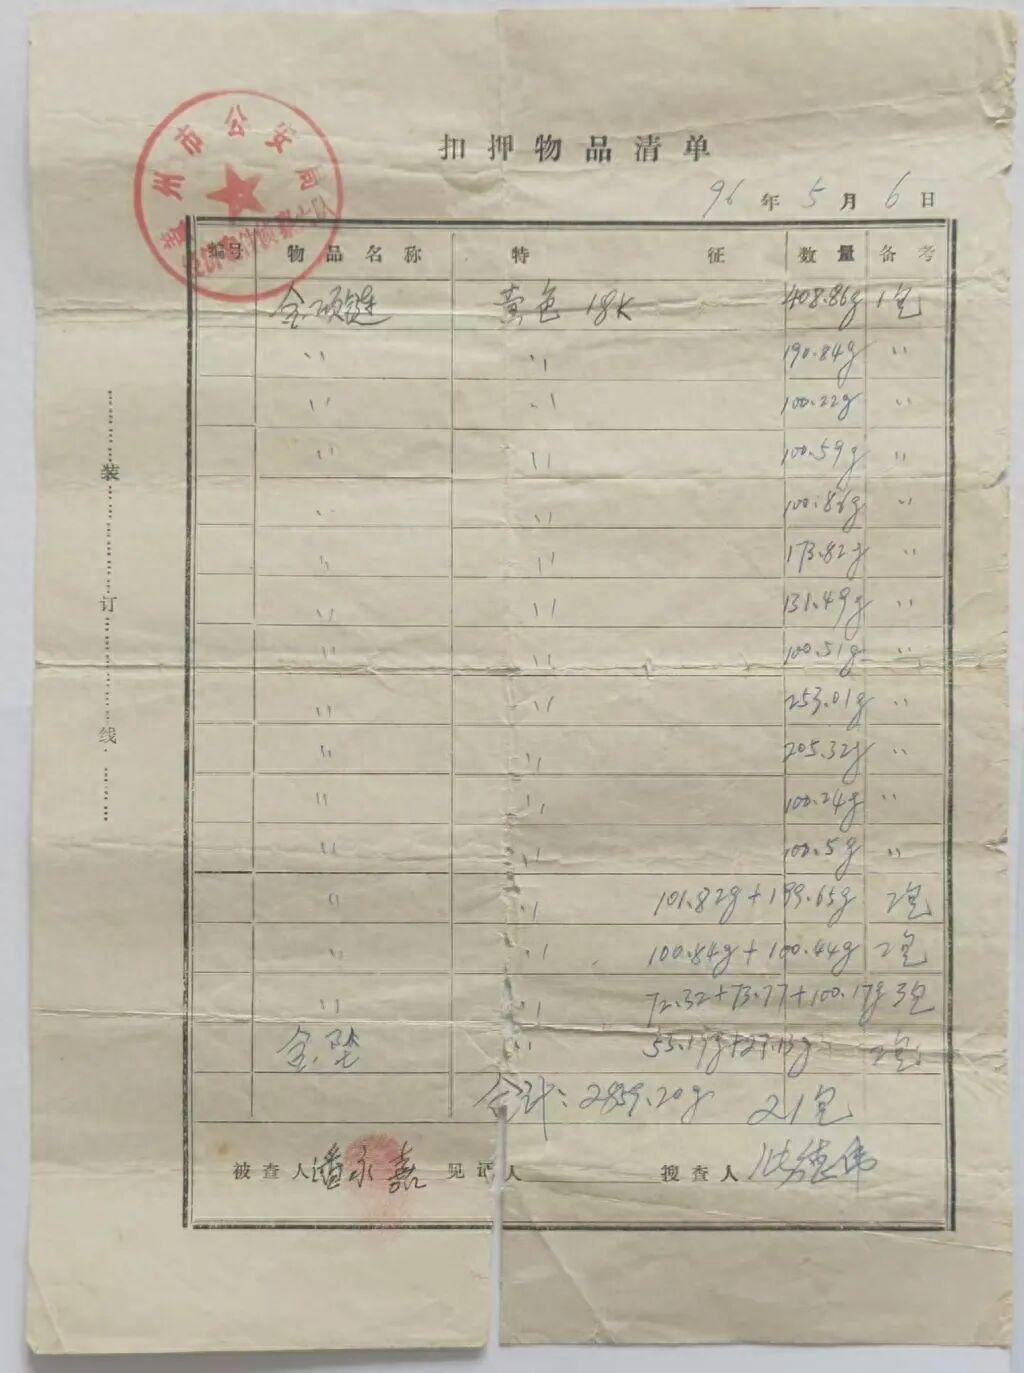 州市公安局
扣押物品清单
96年5月6日
编号 物品名称 特征 数量 备考
金项链 黄色 18K 408.86g 1包
〃 〃 190.84g 〃
〃 〃 100.22g 〃
〃 〃 100.59g 〃
〃 〃 100.86g 〃
〃 〃 173.82g 〃
〃 〃 131.49g 〃
〃 〃 100.51g 〃
〃 〃 253.01g 〃
〃 〃 205.32g 〃
〃 〃 100.24g 〃
〃 〃 100.5g 〃
〃 〃 101.82g+199.65g 2包
〃 〃 100.84g+100.44g 2包
〃 〃 72.32+73.77+100.17g 3包
金坠 〃 2包
合计：2859.20g 21包
被查人 潘永嘉 见证人 搜查人
装订线